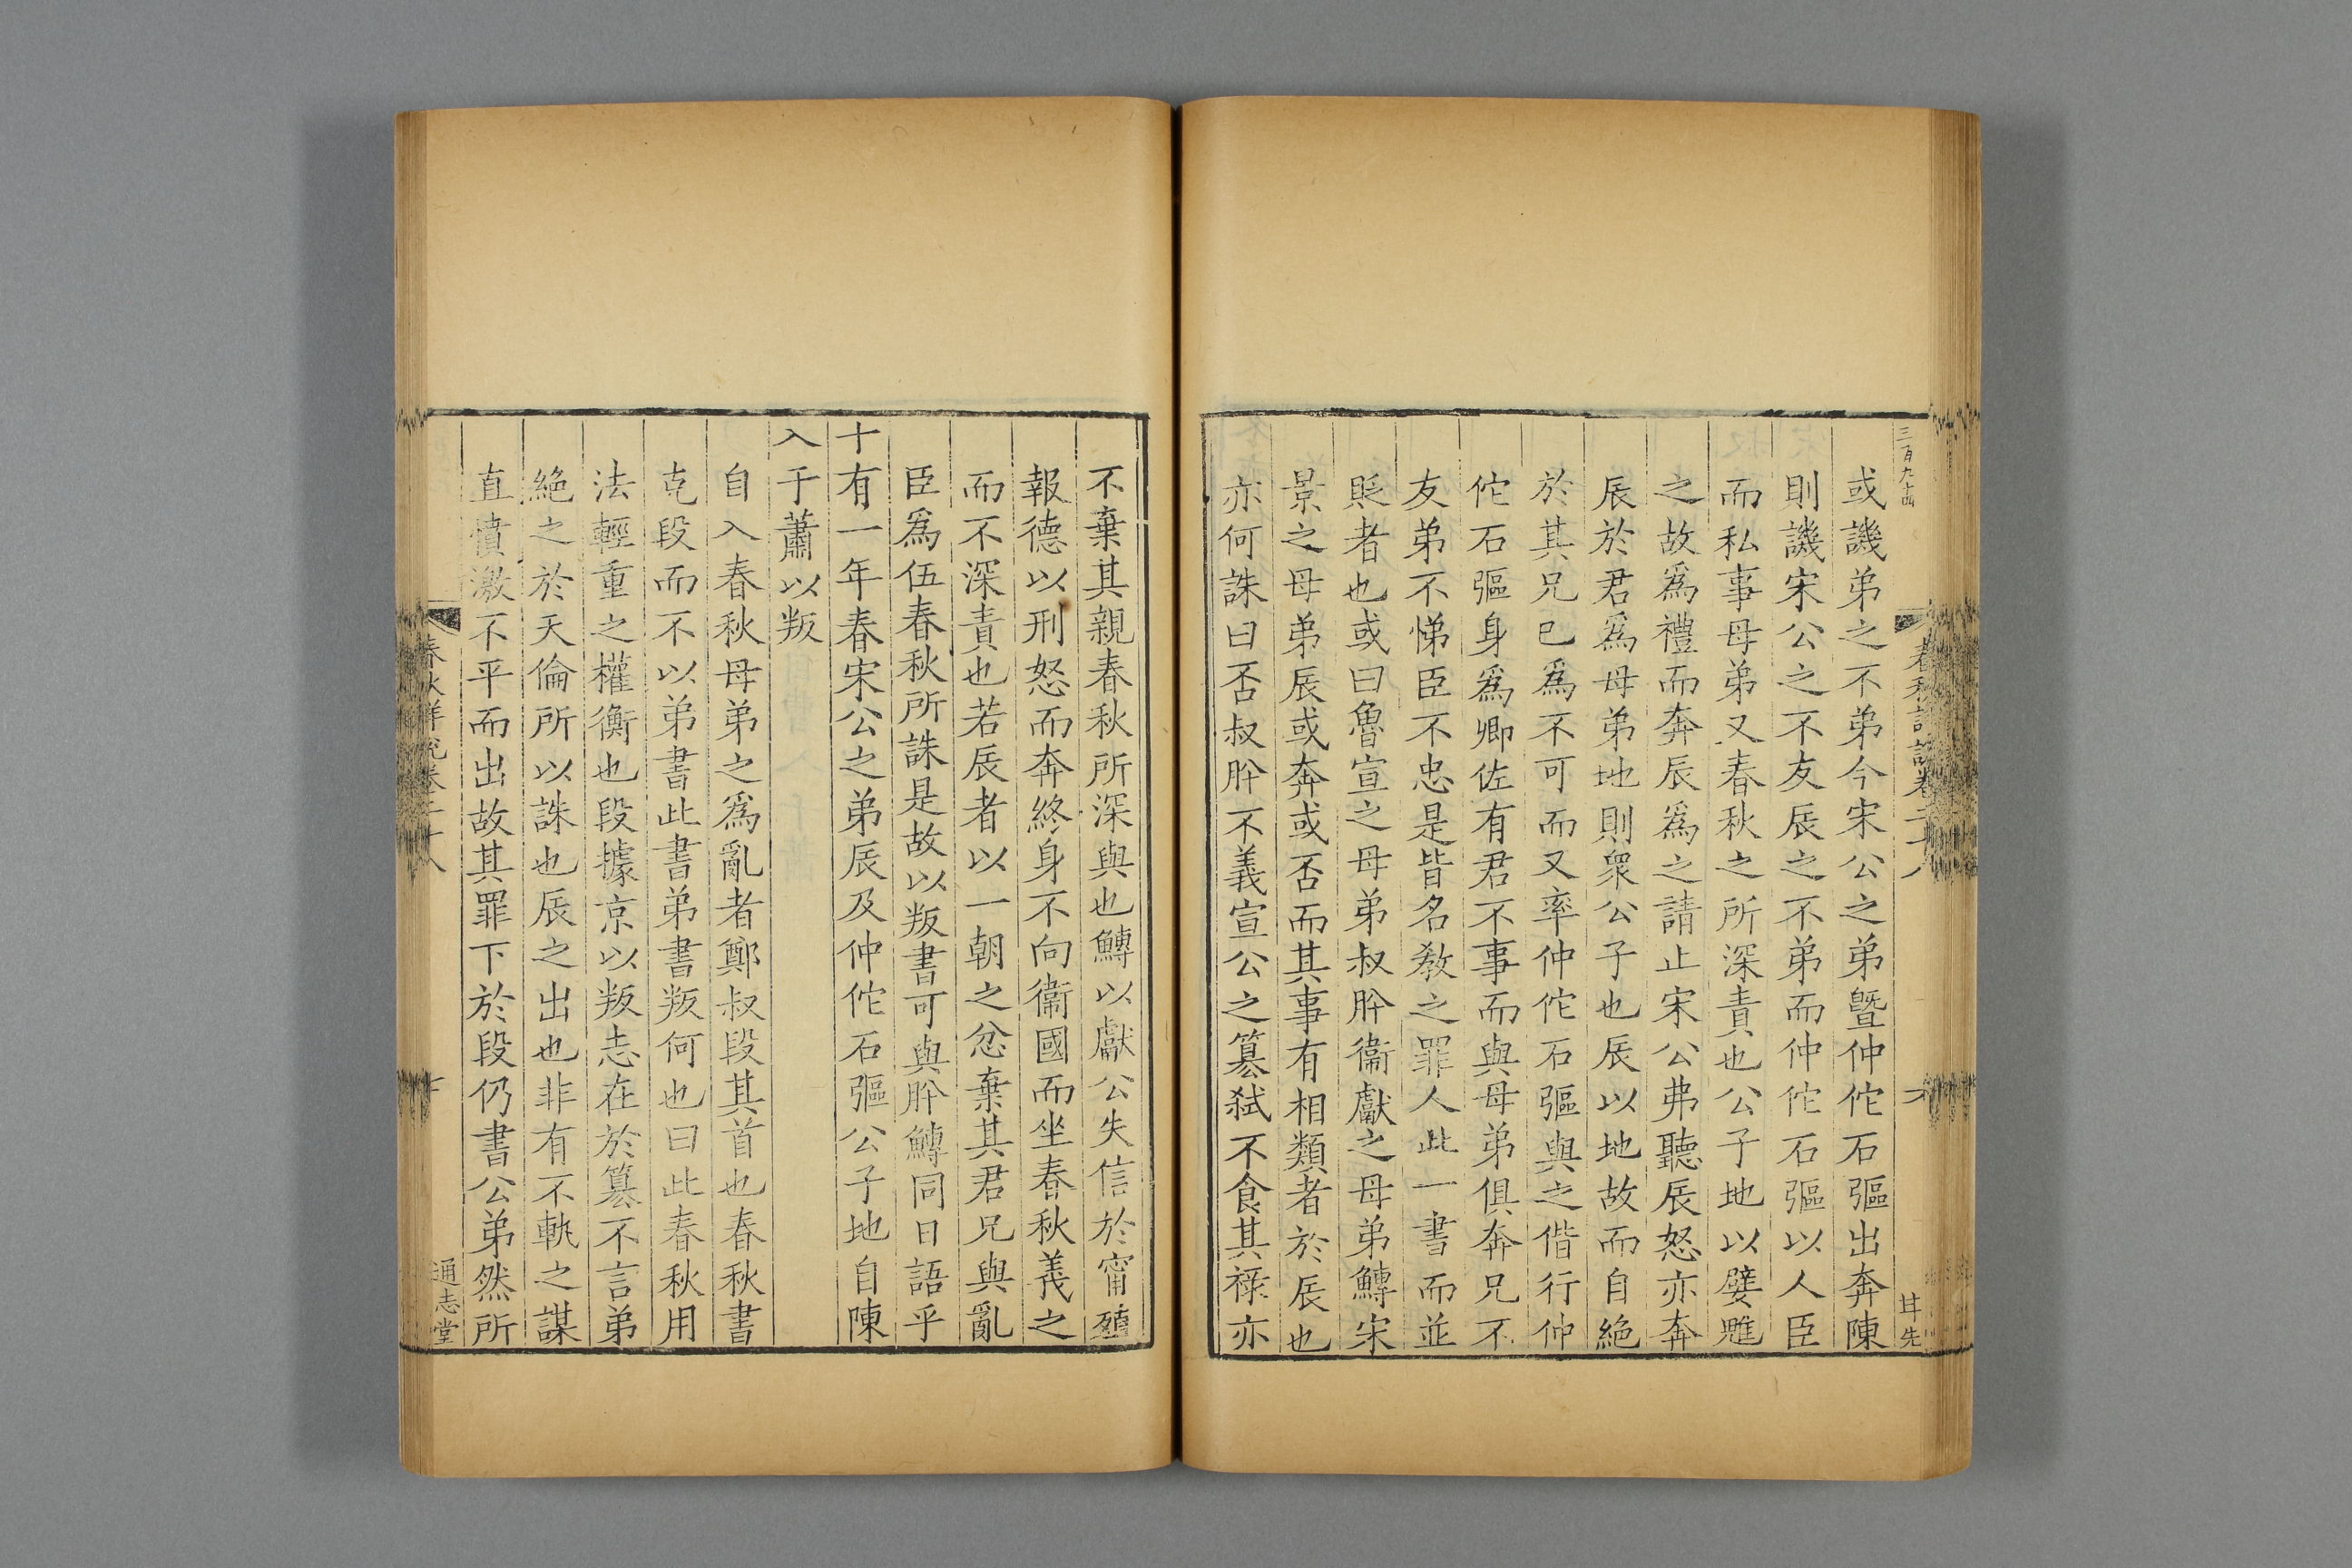 三百九十四
或譏弟之不弟今宋公之弟曁仲佗石彄出奔陳
則譏宋公之不友辰之不弟而仲佗石彄以人臣
而私事母弟又春秋之所深責也公子地以嬖魋
之故爲禮而奔辰爲之請止宋公弗聽辰怒亦奔
辰於君爲母弟地則衆公子也辰以地故而自絕
於其兄已爲不可而又率仲佗石彄與之偕行仲
佗石彄身爲卿佐有君不事而與母弟俱奔兄不
友弟不悌臣不忠是皆名敎之罪人此一書而並
貶者也或曰魯宣之母弟叔肸衞獻之母弟鱄宋
景之母弟辰或奔或否而其事有相類者於辰也
亦何誅曰否叔肸不義宣公之簒弑不食其祿亦
不棄其親春秋所深與也鱄以獻公失信於甯殖
報德以刑怒而奔終身不向衞國而坐春秋義之
而不深責也若辰者以一朝之忿棄其君兄與亂
臣爲伍春秋所誅是故以叛書可與肸鱄同日語乎
十有一年春宋公之弟辰及仲佗石彄公子地自陳
入于蕭以叛
自入春秋母弟之爲亂者鄭叔段其首也春秋書
克段而不以弟書此書弟書叛何也曰此春秋用
法輕重之權衡也段據京以叛志在於簒不言弟
絕之於天倫所以誅也辰之出也非有不軌之謀
直憤激不平而出故其罪下於段仍書公弟然所
春秋詳說卷二十八
通志堂